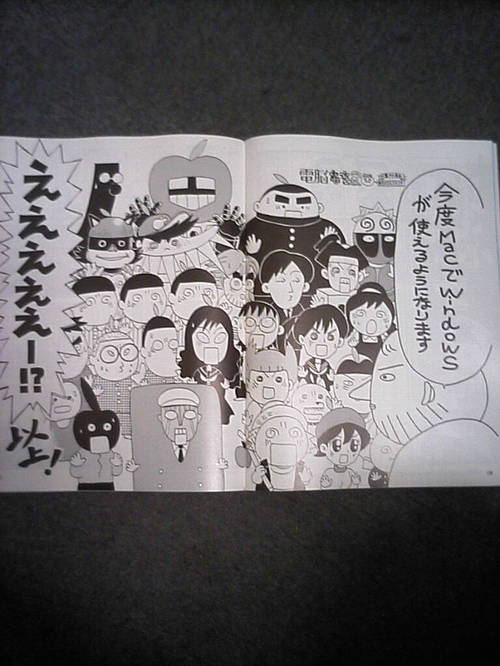 電脳なをさん
今度Macでwindows
が使えるようになります
えええええー!?
以上!